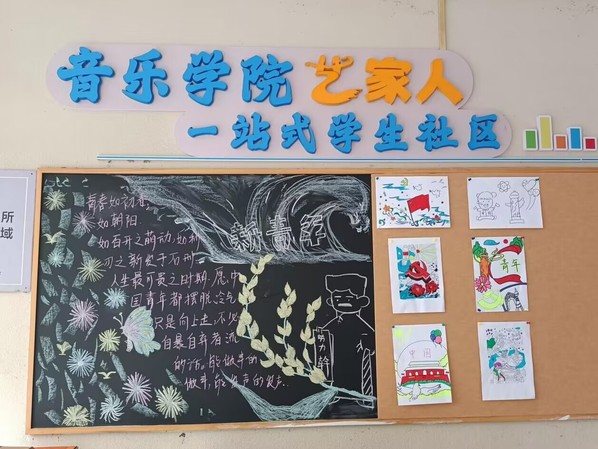 音乐学院艺家人
一站式学生社区
所
域
新青年
青春如初春,
如朝阳,
如百卉之萌动,如利
刃之新发于
人生最可贵之时期。愿中
国青年都摆脱冷气
只是向上走,不必
自暴自弃者流
的话。能做事的
做事,能发声的发声.
青年
中国